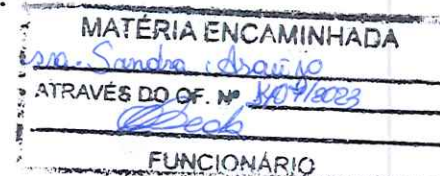 MATÉRIA ENCAMINHADA
sra. Sandra Araújo
ATRAVÉS DO OF. Nº /2023
FUNCIONÁRIO